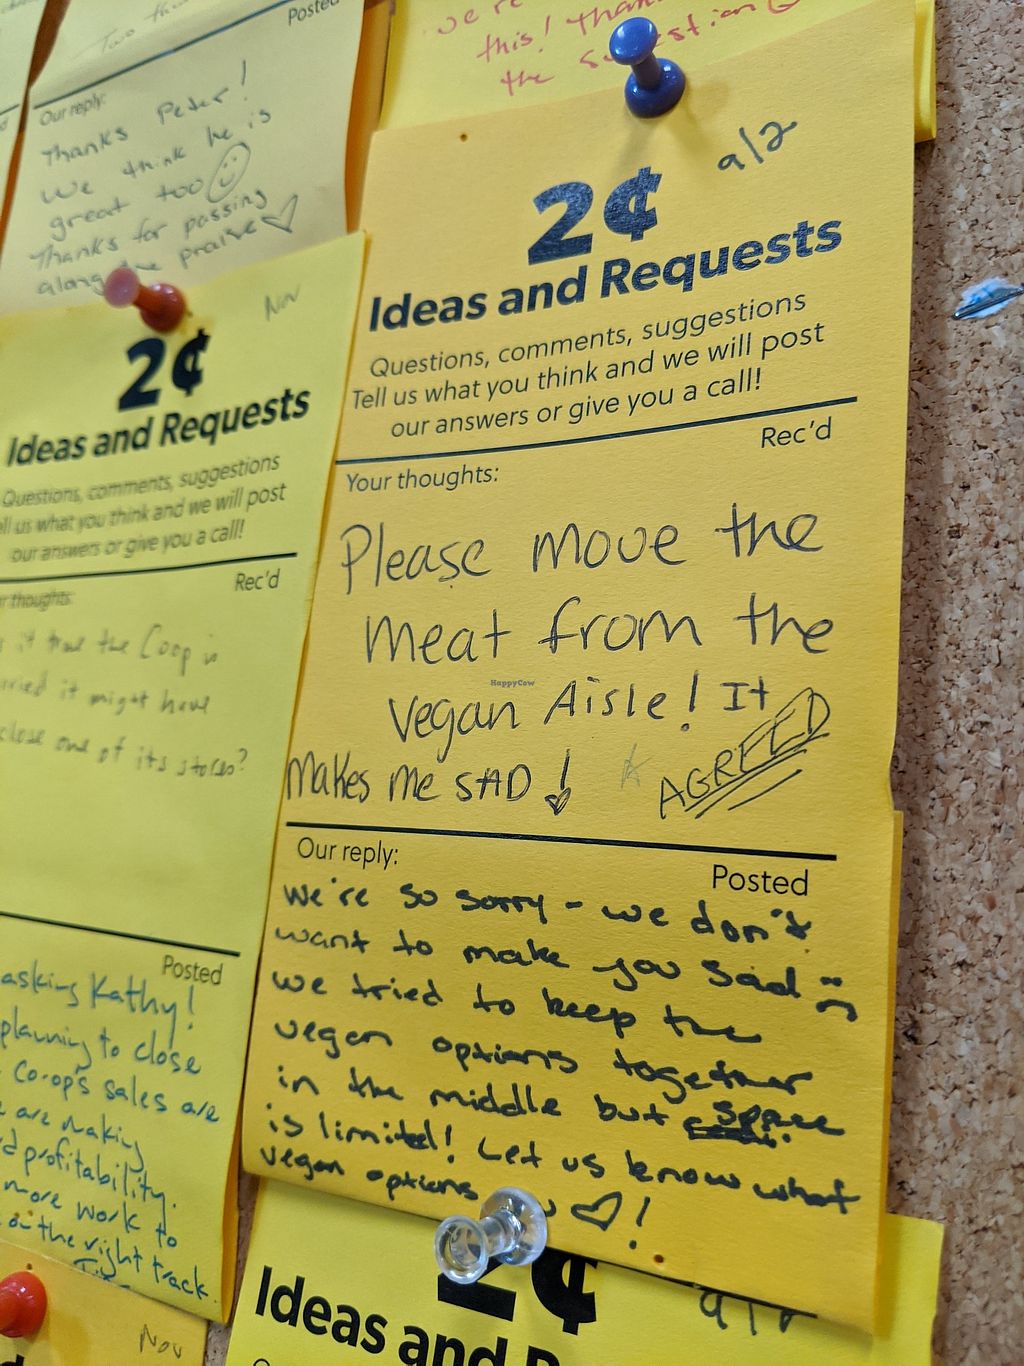 we're
this! Thank
the suggestion
Two
Posted
Our reply:
Thanks Peter!
We think he is
great too
Thanks for passing
along the praise
9/2
2¢
Ideas and Requests
Questions, comments, suggestions
Tell us what you think and we will post
our answers or give you a call!
Rec'd
Your thoughts:
Please move the
meat from the
vegan Aisle! It
makes me SAD!
AGREED
HappyCow
Our reply:
Posted
We're so sorry - we don't
want to make you sad :(
we tried to keep the
vegan options together
in the middle but space
is limited! Let us know what
vegan options
♡!
Nov
2¢
Ideas and Requests
Questions, comments, suggestions
ell us what you think and we will post
our answers or give you a call!
Rec'd
r thoughts:
it true the Coop is
it might have
close one of its stores?
Posted
asking Kathy!
planning to close
Co-op's sales are
are making
d profitability.
more work to
on the right track.
Nov
2¢
9/2
Ideas and R